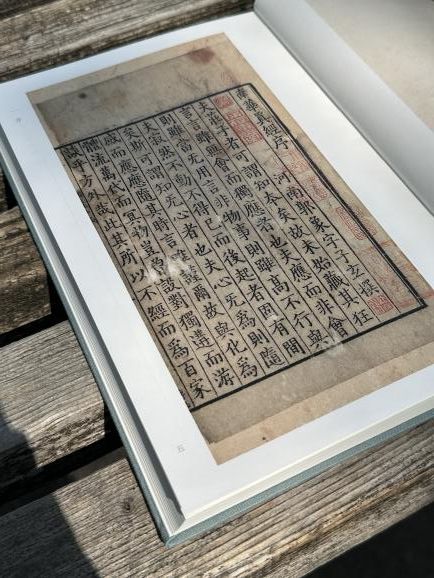 南華真經序
河南郭象字子玄撰
夫莊子者可謂知本矣故未始藏其狂
言言雖无會而獨應者也夫應而非會
則雖當无用言非物事則雖高不行與
夫寂然不動不得已而後起者固有間
矣斯可謂知无心者也夫心无為則隨
感而應應隨其時言唯謹爾故與化為
體流萬代而冥物豈曾設對獨遘而游
談乎方外哉此其所以不經而為百家
五